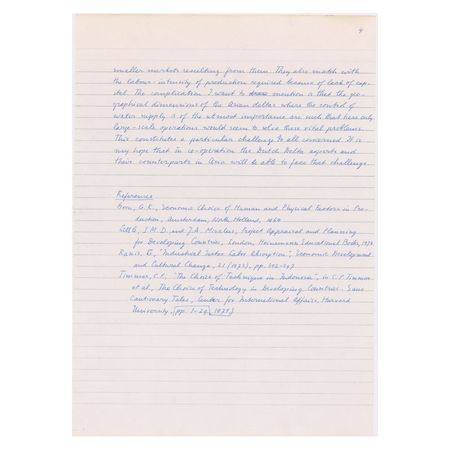 9
smaller markets resulting from them. They also match with
the labour-intensity of production required because of lack of cap-
ital. The complication I want to mention is that the geo-
graphical dimensions of the Asian deltas where the control of
water supply is of the utmost importance are such that here only
large-scale operations would seem to solve these vital problems.
This constitutes a particular challenge to all concerned. It is
my hope that in co-operation the Dutch Delta experts and
their counterparts in Asia will be able to face that challenge.
References
Boon, G.K., Economic Choice of Human and Physical Factors in Pro-
duction, Amsterdam, North Holland, 1964
Little, I.M.D. and J.A. Mirrlees, Project Appraisal and Planning
for Developing Countries, London, Heinemann Educational Books, 1974
Ranis, G, "Industrial Sector Labor Absorption", Economic Development
and Cultural Change, 21 (1973), pp.
Timmer, C.P., "The Choice of Technique in Indonesia", in C.P. Timmer
et al., The Choice of Technology in Developing Countries. Some
Cautionary Tales, Center for International Affairs, Harvard
University, pp. 1-29, 1975)